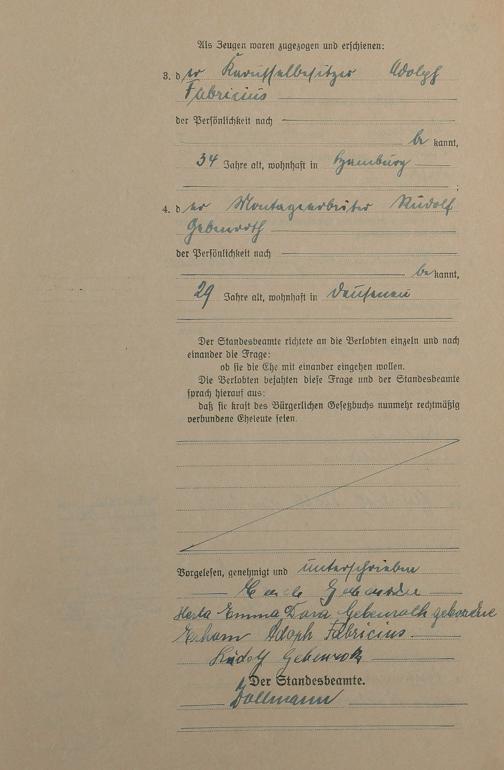 Als Zeugen waren zugezogen und erschienen:
3. der Karusselbesitzer Adolph
Fabricius
der Persönlichkeit nach
bekannt,
34 Jahre alt, wohnhaft in Hamburg
4. der Montagearbeiter Rudolf
Gebenroth
der Persönlichkeit nach
bekannt,
29 Jahre alt, wohnhaft in Dausenau
Der Standesbeamte richtete an die Verlobten einzeln und nach
einander die Frage:
ob sie die Ehe mit einander eingehen wollen.
Die Verlobten bejahten diese Frage und der Standesbeamte
sprach hierauf aus:
daß sie kraft des Bürgerlichen Gesetzbuchs nunmehr rechtmäßig
verbundene Eheleute seien.
Vorgelesen, genehmigt und unterschrieben
Herta Emma Dora Gebenroth geborene
Adolph Fabricius
Rudolf Gebenroth
Der Standesbeamte.
Dollmann